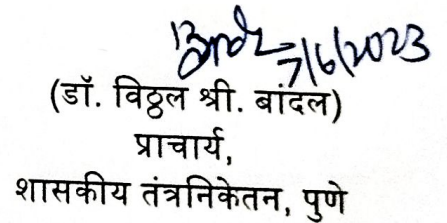 7/6/2023
(डॉ. विठ्ठल श्री. बांदल)
प्राचार्य,
शासकीय तंत्रनिकेतन, पुणे